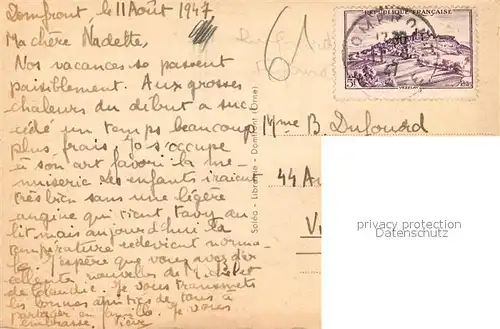 Domfront, le 11 Août 1947
Ma chère Nadette,
Nos vacances se passent
paisiblement. Aux grosses
chaleurs du début a suc-
cédé un temps beaucoup
plus frais. Jo s'occupe
à son art favori la me-
nuiserie. Les enfants iraient
très bien sans une légère
angine qui tient au
lit mais aujourd'hui la
température redevient norma-
le. J'espère que vous avez d'ex-
cellentes nouvelles de M.
de Je vous transmets
les bonnes amitiés de tous à
partager en famille. Je vous
embrasse.
61
REPUBLIQUE FRANÇAISE
5f
VEZELAY
Mme B. Dufourd
44 A
V
Soléo - Librairie - Domfront (Orne)
privacy protection
Datenschutz